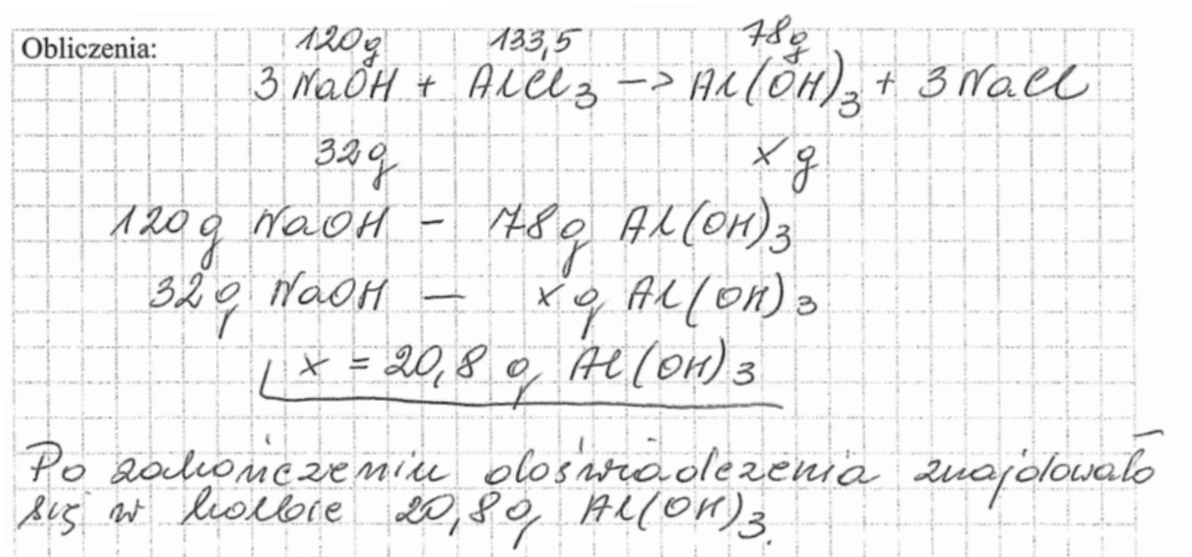 Obliczenia:
120g 133,5 78g
3 NaOH + AlCl₃ -> Al(OH)₃ + 3 NaCl
32g x g
120g NaOH - 78g Al(OH)₃
32g NaOH - x g Al(OH)₃
x = 20,8 g Al(OH)₃
Po zakończeniu doświadczenia znajdowało
się w kolbie 20,8g Al(OH)₃.